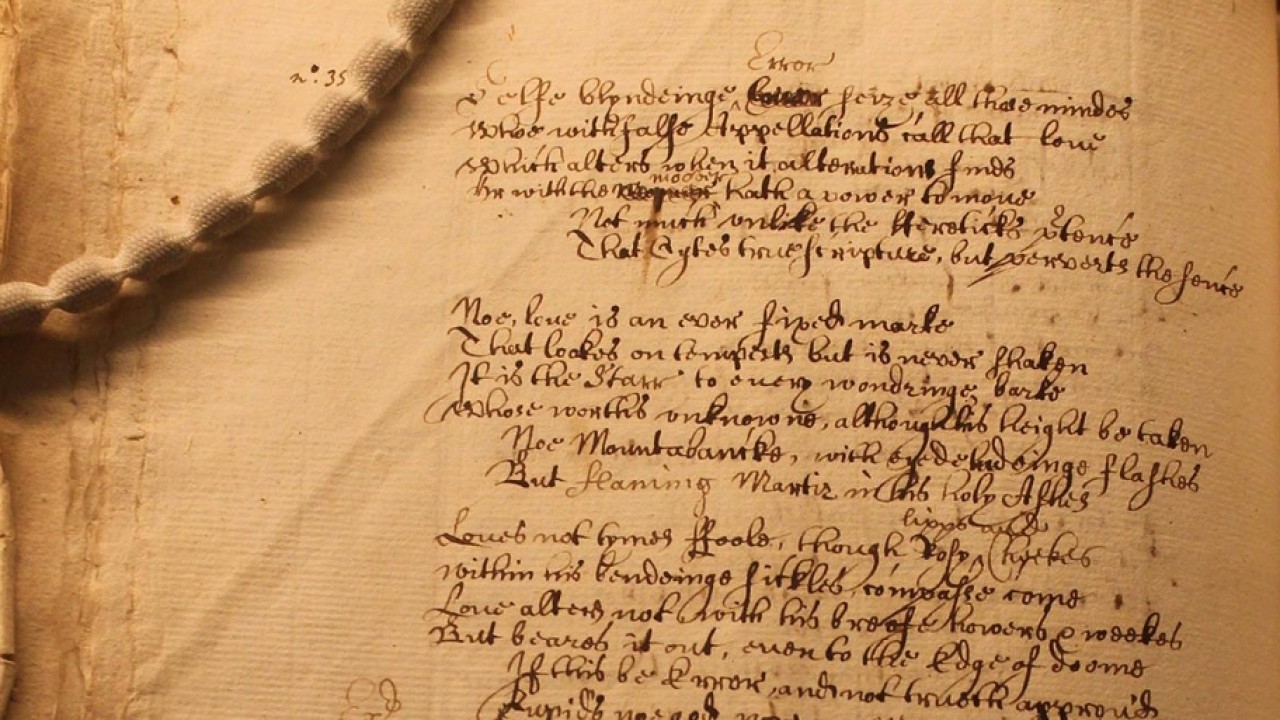 Error
n°. 35
Selfe blyndeinge seize all those mindes
Whoe with false Appellations call that loue
Which alters when it alterations finds
moover
Or with the hath a power to moue
Not much unlike the Hereticks p'tence
That Cytes true scripture, but perverts the sence
Noe, loue is an ever fixed marke
That lookes on tempests but is never shaken
It is the Starr to euery wondringe barke
Whose worths unknowne, although his height be taken
Noe Mountabancke, with eyedeludeinge flashes
But flameing Martir in his holy Ashes
lipps and
Loues not tymes ffoole, though Rosy Cheekes
within his bendeinge sickles compasse come
Loue alters not with his breife howers & weekes
But beares it out, euen to the Edge of doome
If this be Error, and not trueth approu'd
Cupids noe god, nor